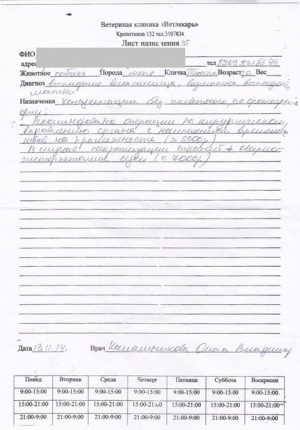 Ветериная клиника «Ветлекарь»
Кропоткина 132 тел.3107834
Лист назначения
ФИО
адрес тел
Животное собака Порода Кличка Возраст Вес
Диагноз выпадение влагалища,
матки
Назначения Консультация без животного, по фотографии.
Рекомендована операция по хирургическому
вправлению органа с наложением временных
швов на (≈ 5000р.)
В случае некротизации тканей + овариогистерэктомия суки (≈ 7000р.)
Дата 13.11.14. Врач Ольга
Понед Вторник Среда Четверг Пятница Суббота Воскресен
9:00-15:00 9:00-15:00 9:00-15:00 9:00-15:00 9:00-15:00 9:00-15:00 9:00-15:00
15:00-21:00 15:00-21:00 15:00-21:00 15:00-21:00 15:00-21:00 15:00-21:00 15:00-21:00
21:00-9:00 21:00-9:00 21:00-9:00 21:00-9:00 21:00-9:00 21:00-9:00 21:00-9:00